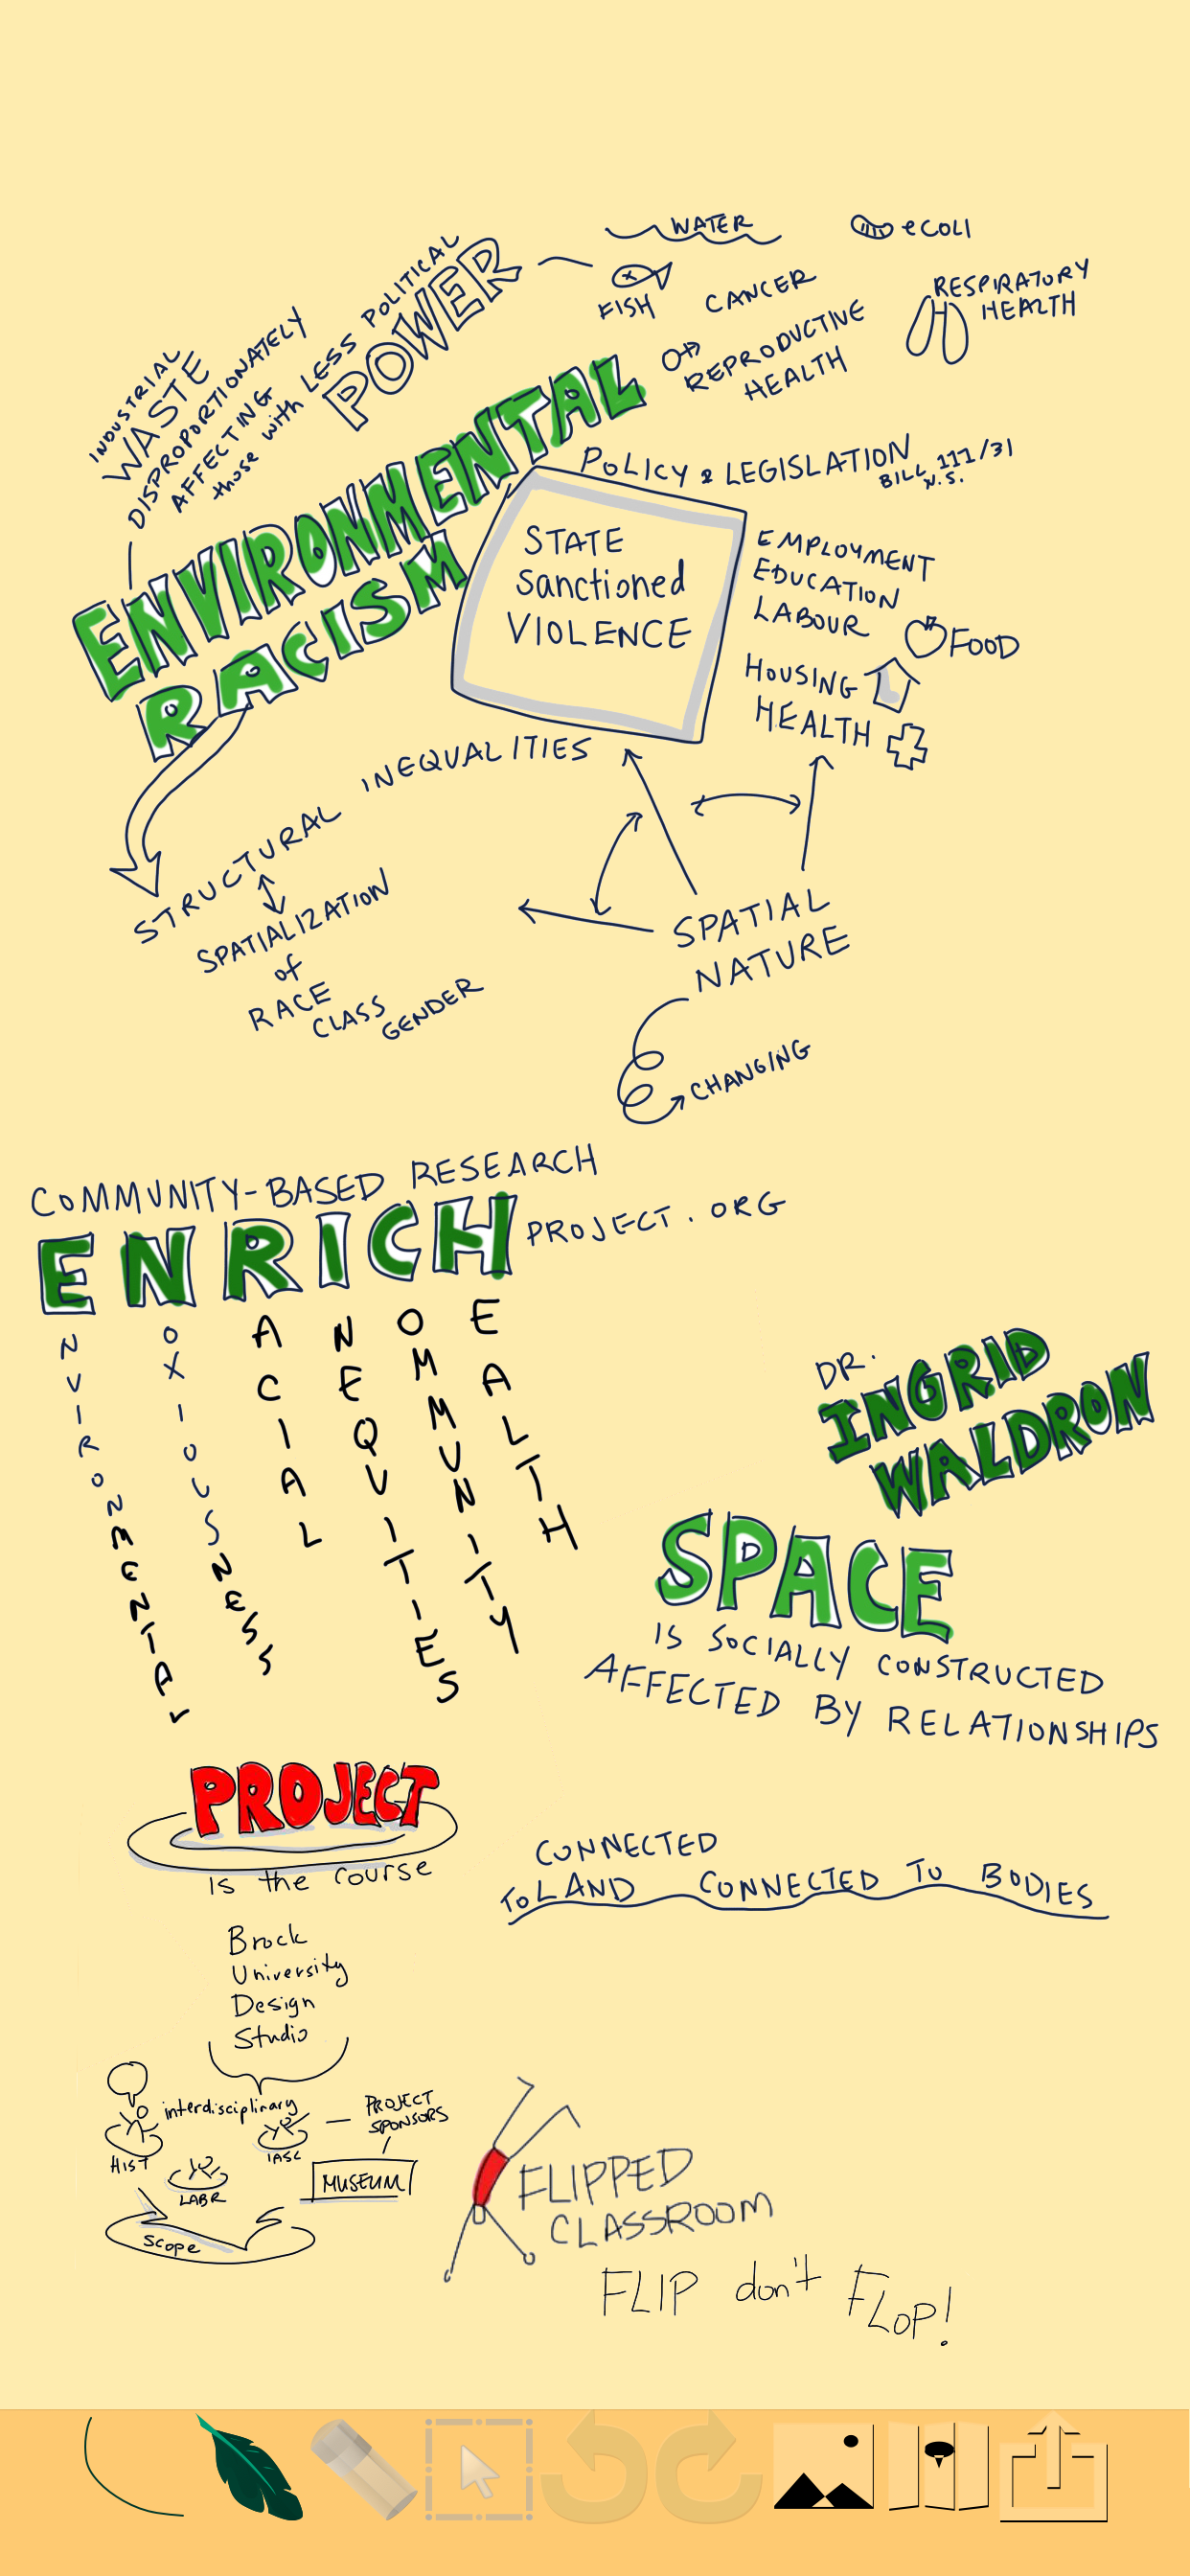 INDUSTRIAL
WASTE
DISPROPORTIONATELY
AFFECTING
those with LESS POLITICAL
POWER
WATER
ecoli
FISH
CANCER
RESPIRATORY
HEALTH
REPRODUCTIVE
HEALTH
ENVIRONMENTAL
RACISM
POLICY & LEGISLATION
BILL 111/31
N.S.
STATE
Sanctioned
VIOLENCE
EMPLOYMENT
EDUCATION
LABOUR
FOOD
HOUSING
HEALTH
STRUCTURAL INEQUALITIES
SPATIALIZATION
of
RACE
CLASS
GENDER
SPATIAL
NATURE
CHANGING
COMMUNITY-BASED RESEARCH
ENRICH PROJECT.ORG
ENVIRONMENTAL
NOXIOUSNESS
RACIAL
INEQUITIES
COMMUNITY
HEALTH
DR.
INGRID
WALDRON
SPACE
IS SOCIALLY CONSTRUCTED
AFFECTED BY RELATIONSHIPS
PROJECT
is the course
CONNECTED
TO LAND CONNECTED TO BODIES
Brock
University
Design
Studio
interdisciplinary
PROJECT
SPONSORS
HIST
IASC
LABR
MUSEUM
scope
FLIPPED
CLASSROOM
FLIP don't FLOP!